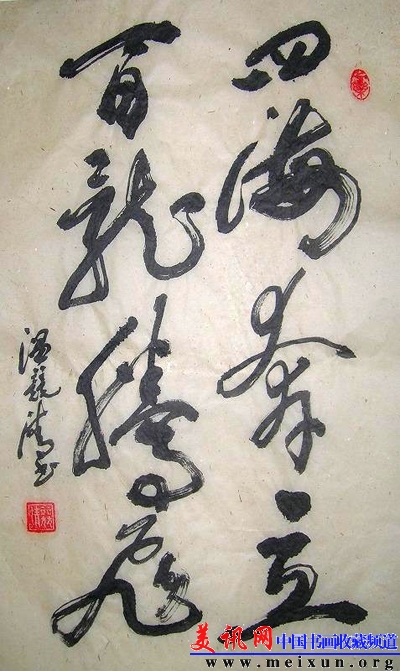 四海立
百龍騰飛
温競书
美讯网 中国书画收藏频道
www.meixun.org